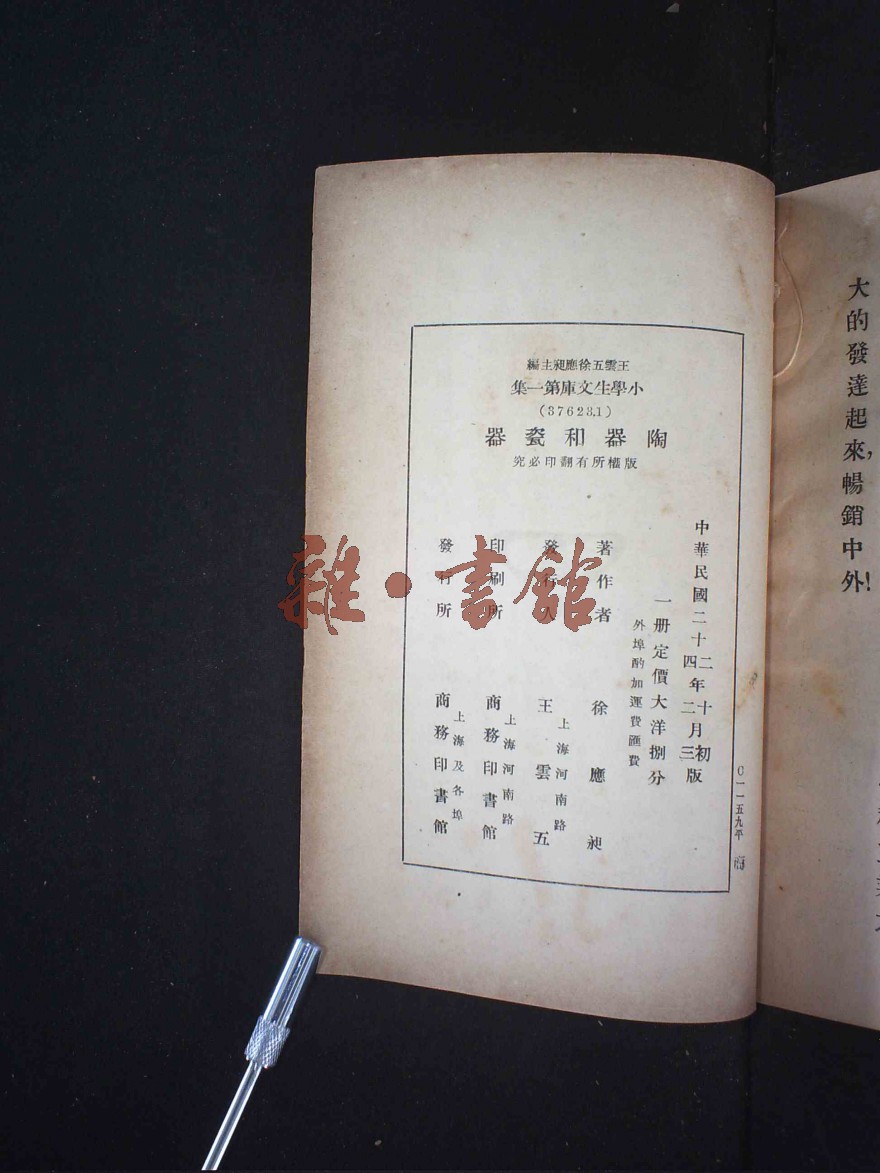 大的發達起來,暢銷中外!
王雲五徐應昶主編
小學生文庫第一集
(37623.1)
陶器和瓷器
版權所有翻印必究
中華民國二十二年十月初版
四年二月三版
一册定價大洋捌分
外埠酌加運費匯費
著作者 徐應昶
上海河南路
發行人 王雲五
上海河南路
印刷所 商務印書館
上海及各埠
發行所 商務印書館
C一一五九平
雜·書館